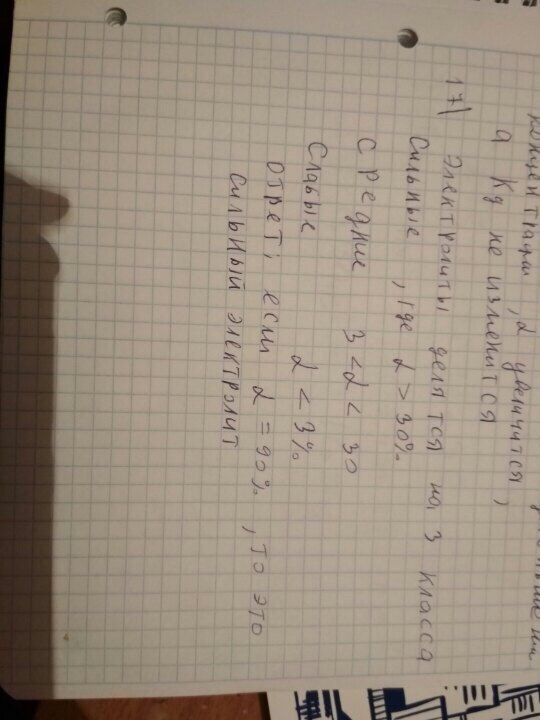 концентрации, α увеличится,
а Kд не изменится
17) Электролиты делятся на 3 класса
Сильные, где α > 30%
Средние 3 < α < 30
Слабые α < 3%
Ответ: если α = 90%, то это
сильный электролит